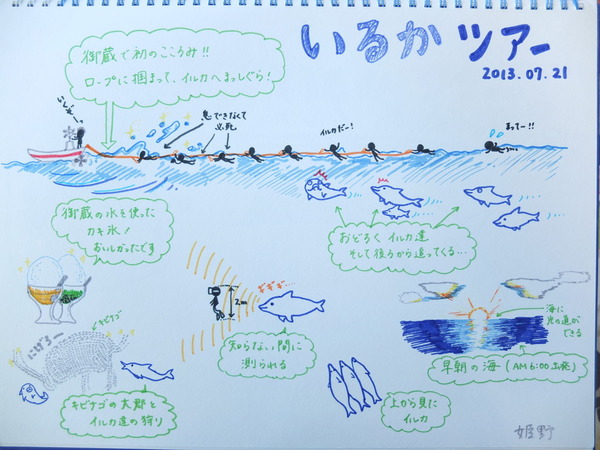 いるかツアー
2013.07.21
御蔵で初のこころみ!!
ロープに掴まって、イルカへまっしぐら!
いくぞー
息できなくて
必死
イルカだー!
まってー!!
御蔵の氷を使った
カキ氷!
おいしかったです
おどろくイルカ達
そして後ろから追ってくる…
ギギギ…
2m
知らない間に
測られる
海に
光の道が
できる
早朝の海(AM6:00出発)
にげろー
キビナゴ
キビナゴの大郡と
イルカ達の狩り
上から見た
イルカ
姫野